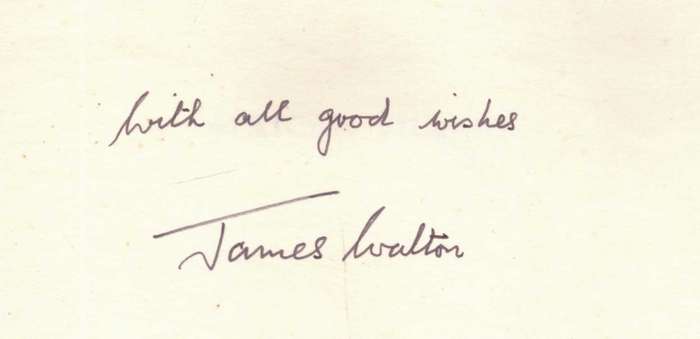 With all good wishes
James Walton